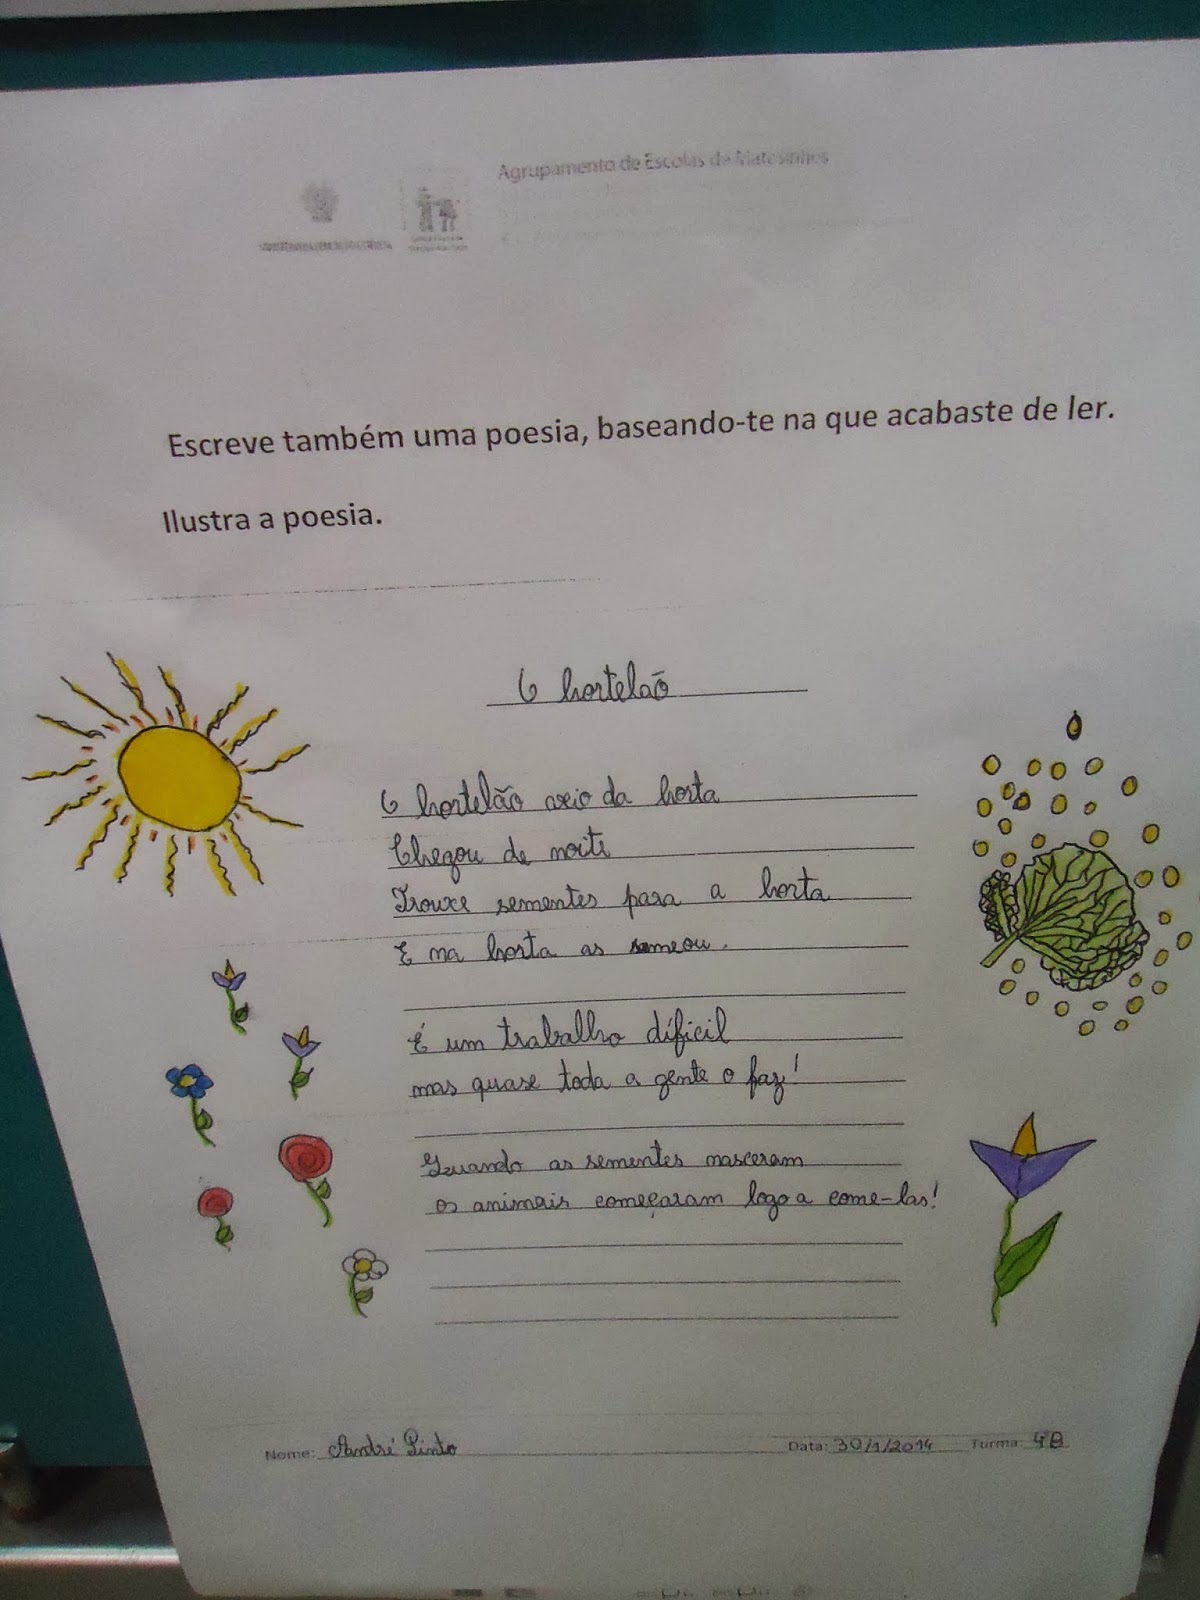 Agrupamento de Escolas de Matosinhos
Escreve também uma poesia, baseando-te na que acabaste de ler.
Ilustra a poesia.
O hortelão
O hortelão veio da horta
Chegou de noite
Trouxe sementes para a horta
E na horta as semeou.
É um trabalho díficil
mas quase toda a gente o faz!
Quando as sementes nasceram
os animais começaram logo a come-las!
Nome: André Pinto Data: 30/1/2014 Turma: 4B